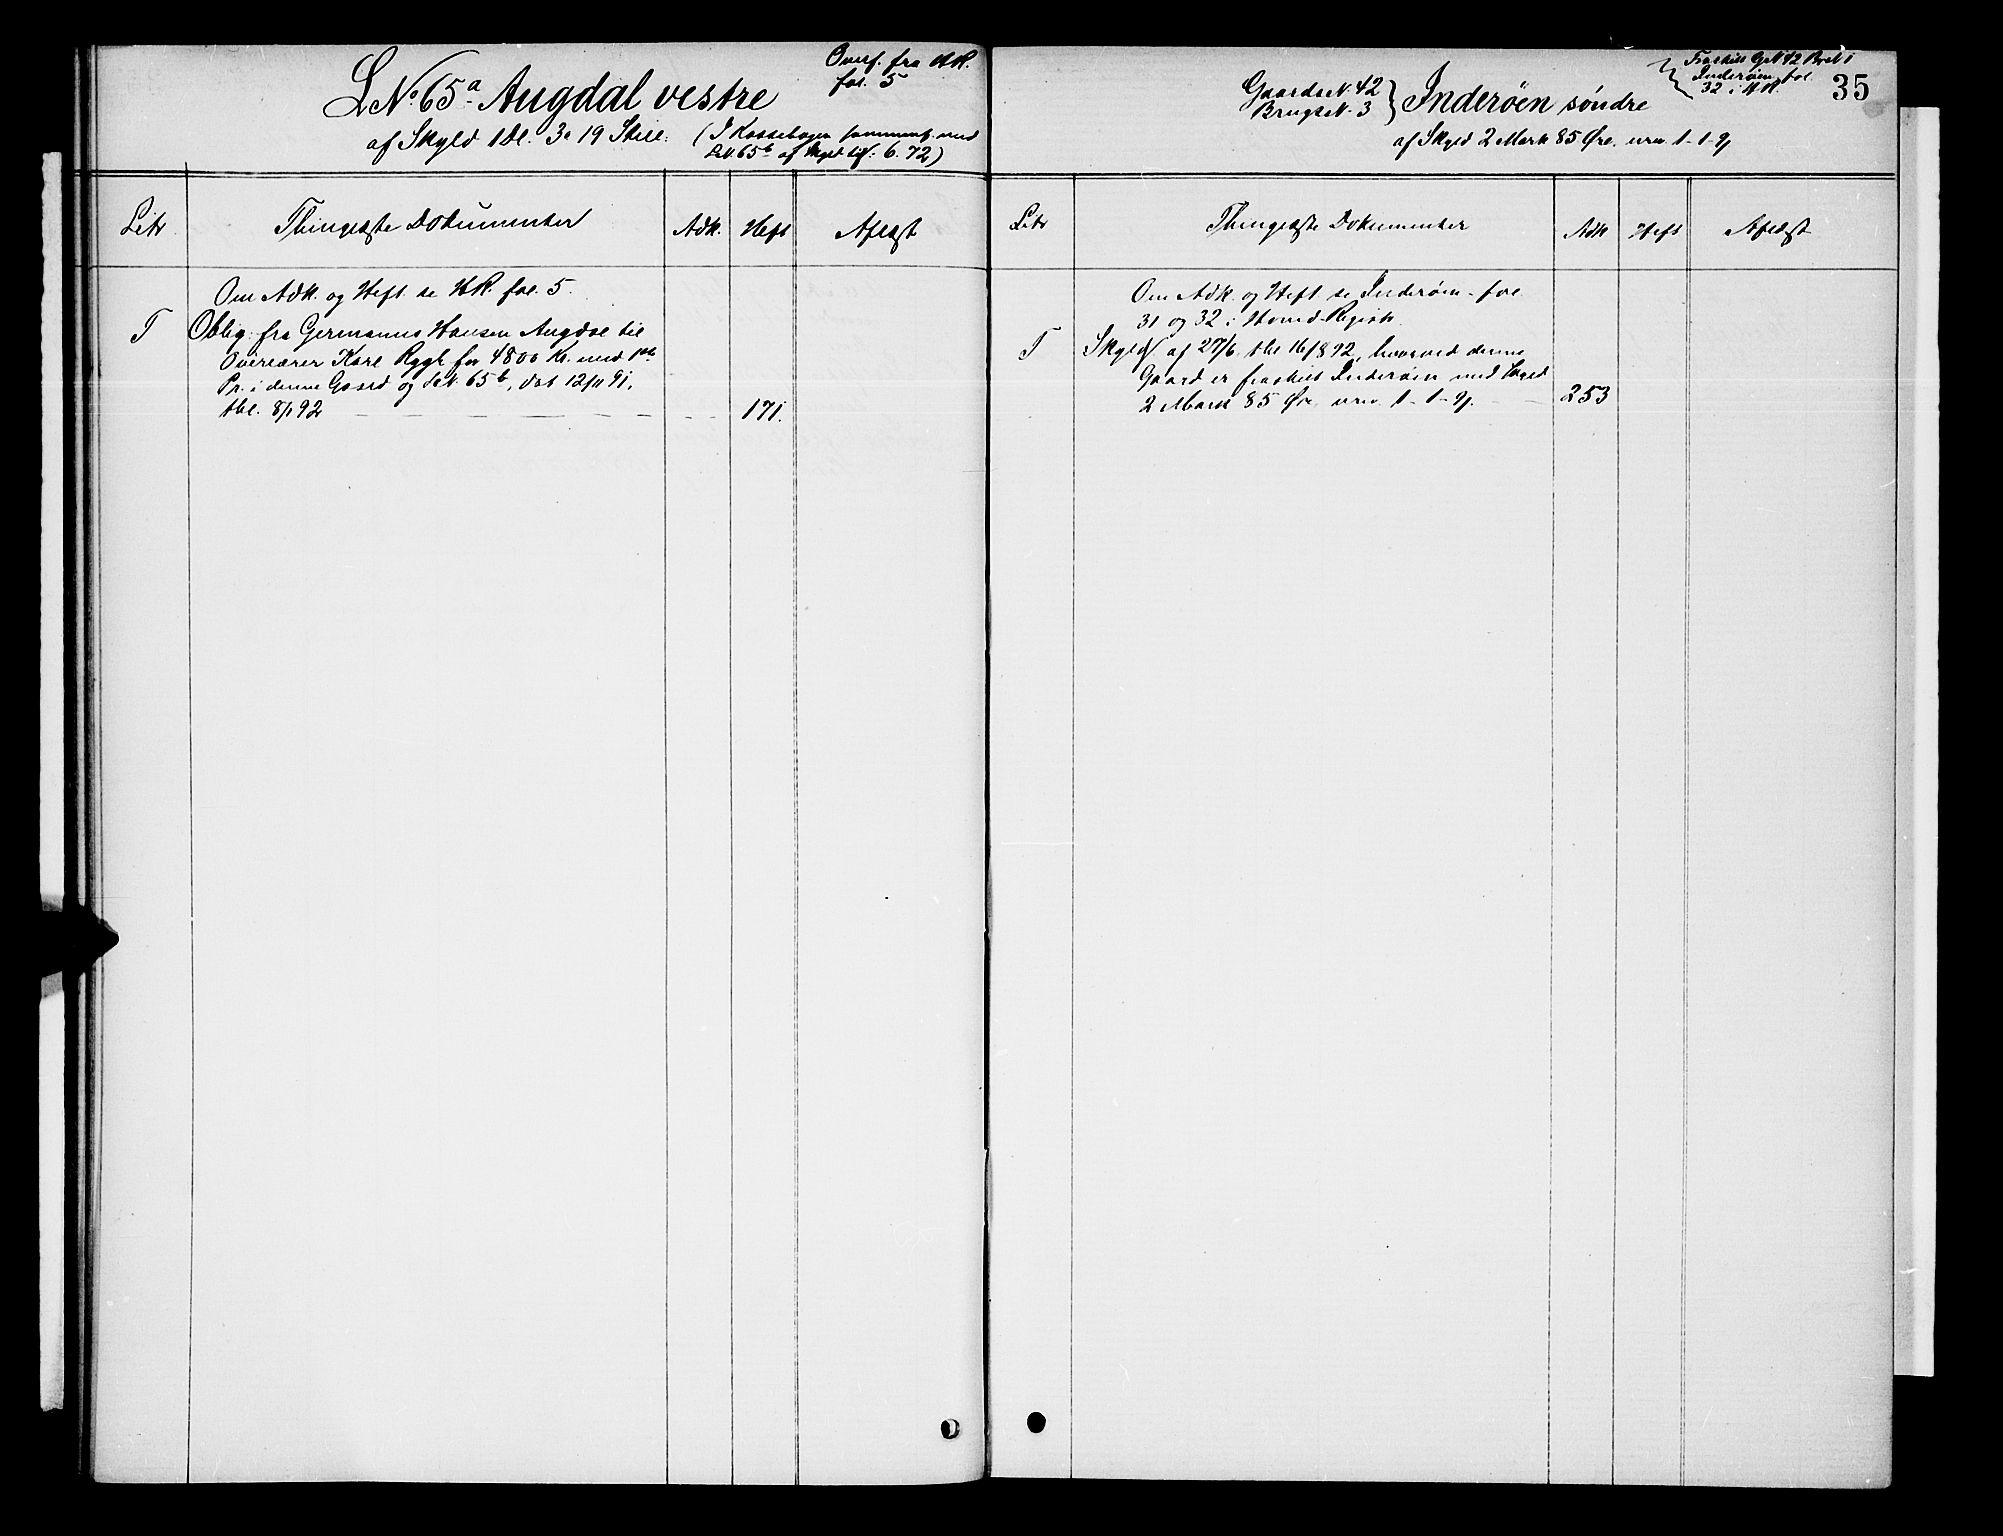 LNo. 65a Augdal vestre
Overf. fra HR.
fol. 5
af Skyld 1 Dl. 3 o 19 Skill.
(I Kassebogen sammenf. med
LN. 65b af Skyld 6. 72)
Litr
Thinglæste Dokumenter
Adk.
Heft
Aflæst
Om Adk. og Heft. se HR. fol. 5.
T
Oblig. fra Germanus Hansen Augdal til
Overlærer Karl Rygh for 4800 Kr. med 1ste
Pr. i denne Gaard og LN. 65b, dat 12/11 91,
thl. 8/1 92
171.
Gaards N. 42
Brugs N. 3
Inderøen søndre
Fraskilt G.N. 42 B.N. 1
Inderøen, fol.
32 i H.R.
35
af Skyld 2 Mark 85 Øre.
Litr
Thinglæste Dokumenter
Adk
Heft
Aflæst
Om Adk. og Heft. se Inderøen fol.
31 og 32 i Hoved-Regist.
T
af 27/6, thl 16/8 92, hvorved denne
Gaard er fraskilt Inderøen med Skyld
2 Mark 85 Øre
253